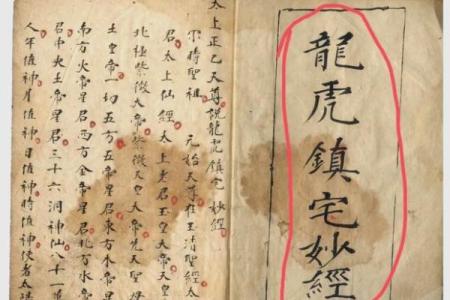 龍虎鎮宅妙經
太上正乙天尊說龍虎鎮宅妙經
尒時聖祖 元始天尊在玉清聖經太
君太上仙經太上老君玉皇大帝
北極紫微大帝紫微天皇大帝先天聖母
土皇帝一切五方五帝星君東方木帝星
南方火帝星君西方金帝星君北方水帝
君中央土帝星君三十六洞神仙八十一
人年值神月值神日值神時值神使者太